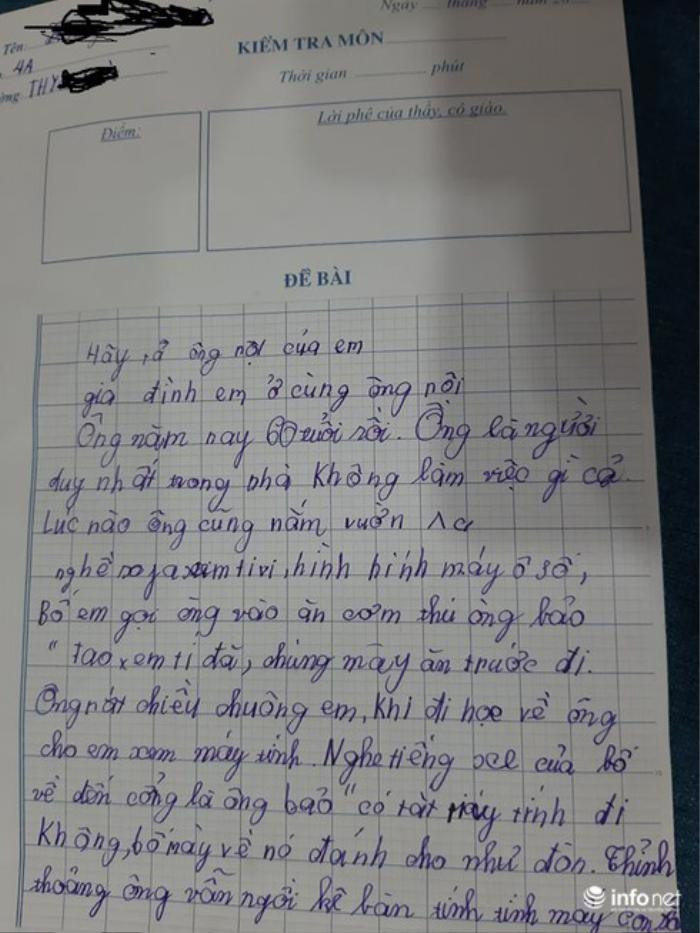 Ngày tháng năm 20
Tên:
KIỂM TRA MÔN
4A
Thời gian phút
THY
Điểm:
Lời phê của thầy, cô giáo.
ĐỀ BÀI
Hãy tả ông nội của em
gia đình em ở cùng ông nội
Ông năm nay 60 tuổi rồi. Ông là người
duy nhất trong nhà không làm việc gì cả.
Lúc nào ông cũng nằm vườn ra
nghế xem tivi, hình hính máy ô số,
Bố em gọi ông vào ăn cơm thì ông bảo
"tao xem tí đã, chúng mày ăn trước đi.
Ông rất chiều chuộng em, khi đi học về ông
cho em xem máy tính. Nghe tiếng xe của bố
về đến cổng là ông bảo "có tắt máy tính đi
không, bố mày về nó đánh cho như đòn. Thỉnh
thoảng ông vẫn ngồi kê bàn tính tính may con
infonet